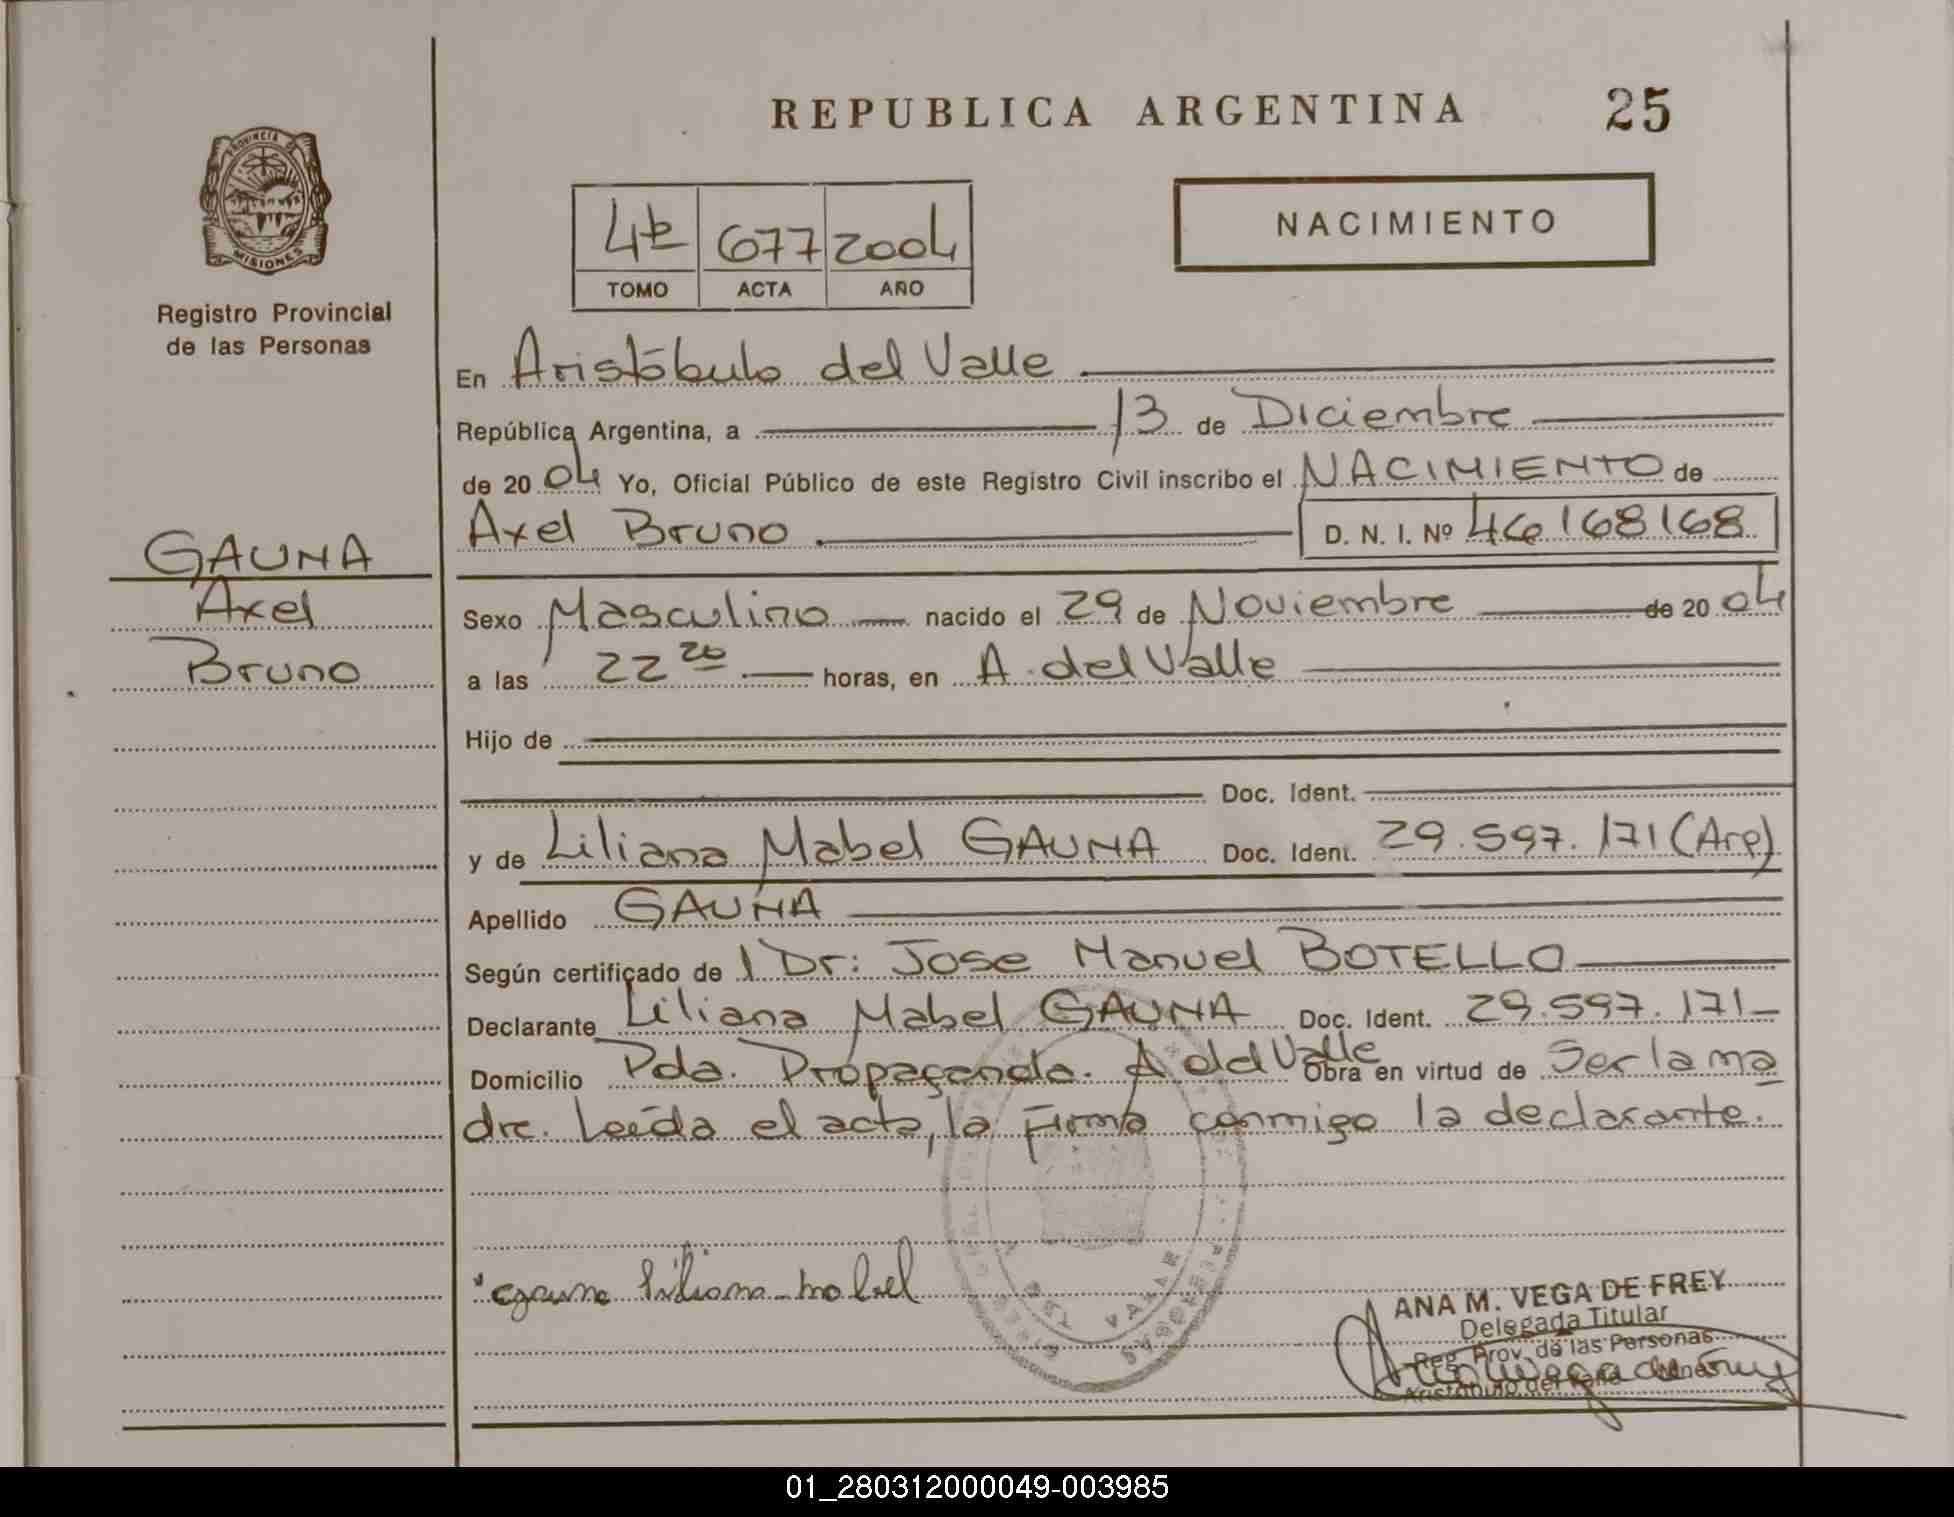 REPUBLICA ARGENTINA 25
PROVINCIA DE
MISIONES
Registro Provincial
de las Personas
4º 677 2004
TOMO ACTA AÑO
NACIMIENTO
En Aristóbulo del Valle
República Argentina, a 13 de Diciembre
de 2004 Yo, Oficial Público de este Registro Civil inscribo el NACIMIENTO de
Axel Bruno D. N. I. Nº 46168168
GAUNA
Axel
Bruno
Sexo Masculino nacido el 29 de Noviembre de 2004
a las 22 20 horas, en A. del Valle
Hijo de
Doc. Ident.
y de Liliana Mabel GAUNA Doc. Ident. 29.597.171 (Arg)
Apellido GAUNA
Según certificado de l Dr: Jose Manuel BOTELLO
Declarante Liliana Mabel GAUNA Doc. Ident. 29.597.171
Domicilio Pda. Propaganda. A del Valle Obra en virtud de Ser la ma
dre. Leída el acta, la firma conmigo la declarante.
gauna liliana mabel
ANA M. VEGA DE FREY
Delegada Titular
Reg. Prov. de las Personas
Aristóbulo del Valle
01_280312000049-003985